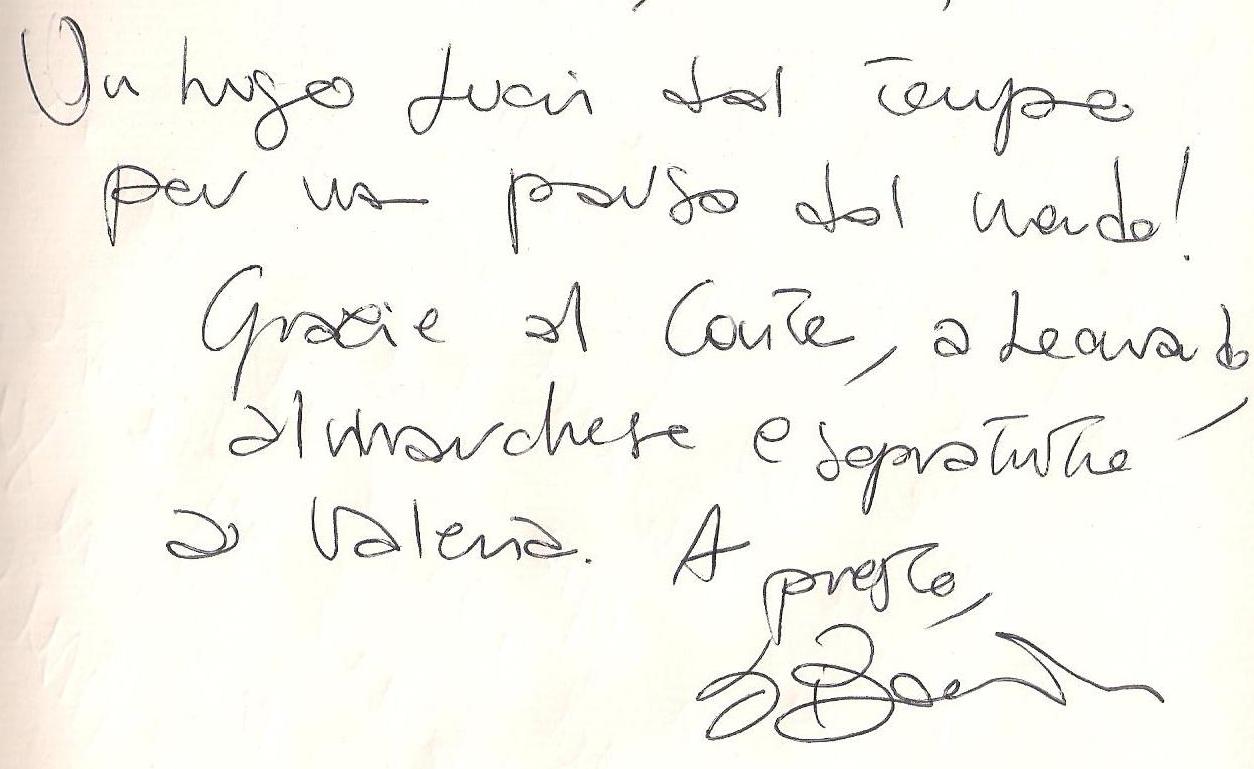 Un luogo fuori dal tempo
per un pranzo dal mondo!
Grazie al Conte, a Leonardo,
al marchese e soprattutto
a Valeria. A presto,